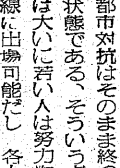 都市対抗はそのまま終
状態である、そういう
は大いに若い人は努力
線に出場可能だし　各